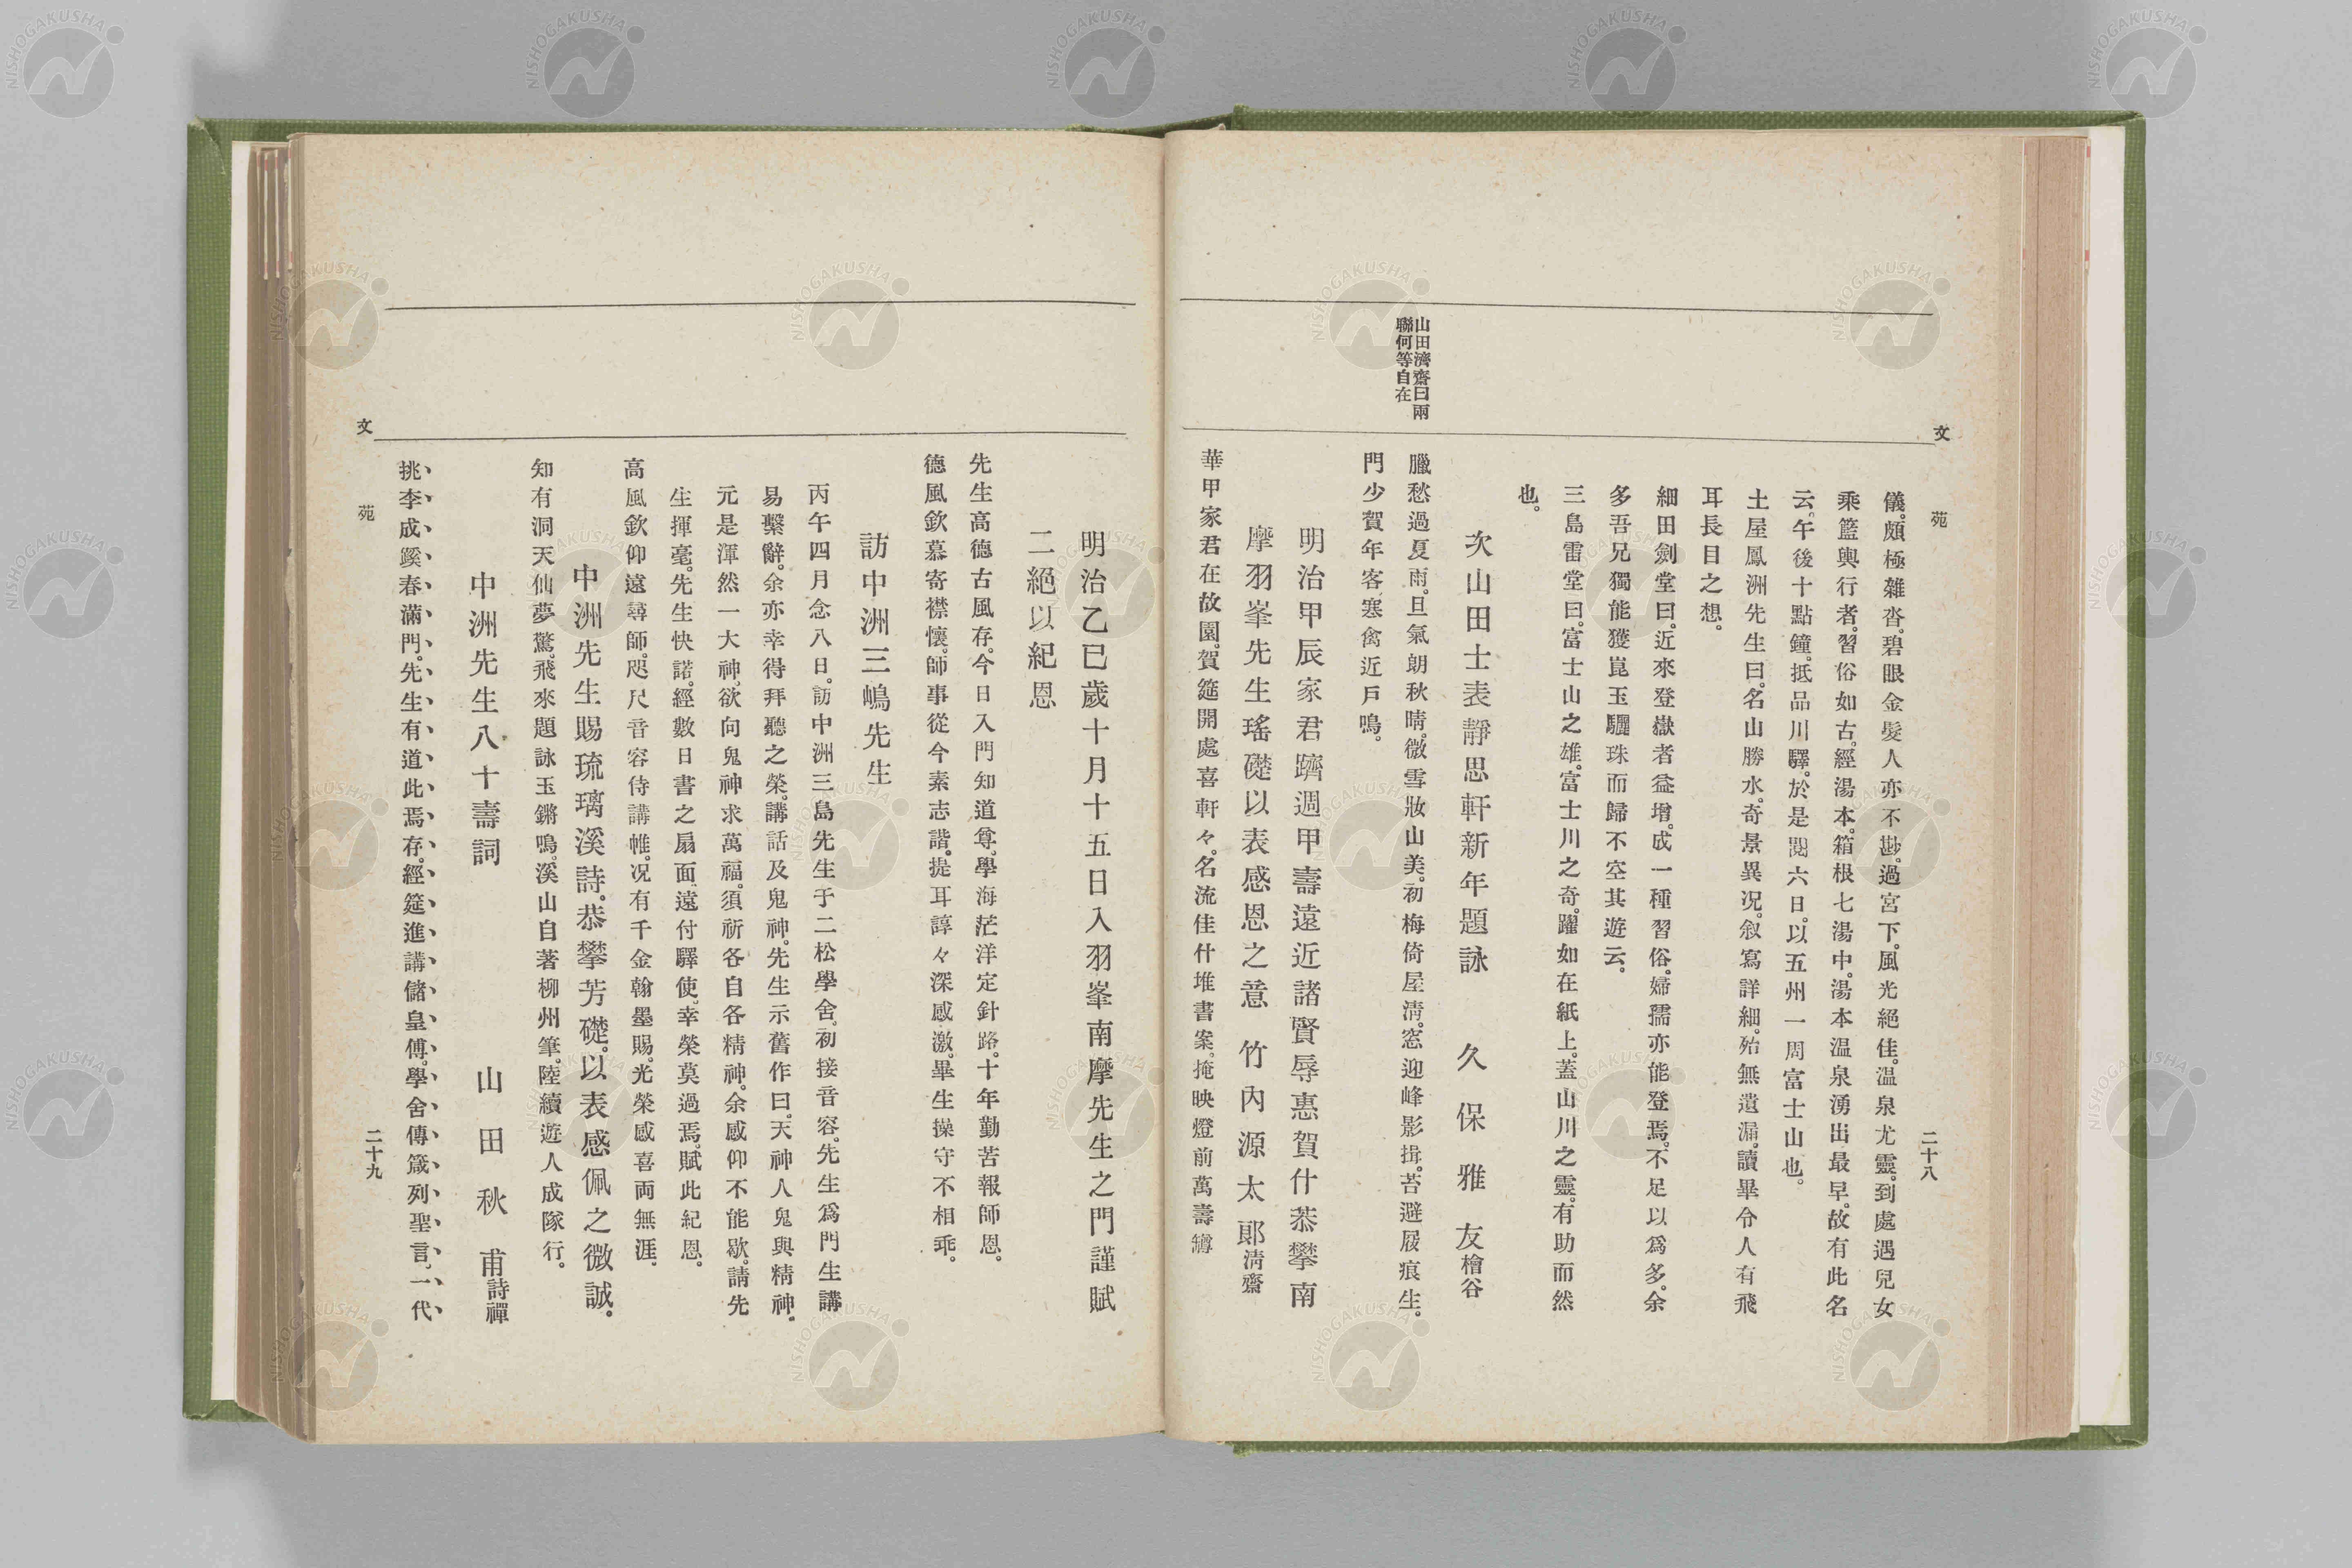 文苑
二十八
儀。頗極雜沓。碧眼金髮人亦不尠。過宮下。風光絕佳。温泉尤靈。到處遇兒女
乘籃輿行者。習俗如古。經湯本。箱根七湯中。湯本温泉湧出最早。故有此名
云。午後十點鐘。抵品川驛。於是閲六日。以五州一周富士山也。
土屋鳳洲先生曰。名山勝水。奇景異况。叙寫詳細。殆無遺漏。讀畢令人有飛
耳長目之想。
細田劍堂曰。近來登嶽者益增。成一種習俗。婦孺亦能登焉。不足以爲多。余
多吾兄獨能獲崑玉驪珠而歸不空其遊云。
三島雷堂曰。富士山之雄。富士川之奇。躍如在紙上。蓋山川之靈。有助而然
也。
次山田士表靜思軒新年題詠　久保雅友檜谷
山田濟齋曰兩
聯何等自在
臘愁過夏雨。旦氣朗秋晴。微雪妝山美。初梅倚屋淸。窓迎峰影揖。苔避屐痕生。
門少賀年客。寒禽近戸鳴。
明治甲辰家君躋週甲壽遠近諸賢辱惠賀什恭攀南
摩羽峯先生瑤礎以表感恩之意　竹內源太郞淸齋
華甲家君在故園。賀筵開處喜軒々。名流佳什堆書案。掩映燈前萬壽罇
明治乙巳歲十月十五日入羽峯南摩先生之門謹賦
二絕以紀恩
先生高德古風存。今日入門知道尊。學海茫洋定針路。十年勤苦報師恩。
德風欽慕寄襟懷。師事從今素志諧。提耳諄々深感激。畢生操守不相乖。
訪中洲三嶋先生
丙午四月念八日。訪中洲三島先生于二松學舍。初接音容。先生爲門生講
易繫辭。余亦幸得拜聽之榮。講話及鬼神。先生示舊作曰。天神人鬼與精神。
元是渾然一大神。欲向鬼神求萬福。須祈各自各精神。余感仰不能歇。請先
生揮毫。先生快諾。經數日書之扇面。遠付驛使。幸榮莫過焉。賦此紀恩。
高風欽仰遠尋師。咫尺音容侍講帷。况有千金翰墨賜。光榮感喜兩無涯。
中洲先生賜琉璃溪詩。恭攀芳礎。以表感佩之微誠。
知有洞天仙夢驚。飛來題詠玉鏘鳴。溪山自著柳州筆。陸續遊人成隊行。
中洲先生八十壽詞　山田秋甫詩禪
挑李成蹊春滿門。先生有道此焉存。經筵進講儲皇傅。學舍傳箴列聖言。一代
文苑
二十九